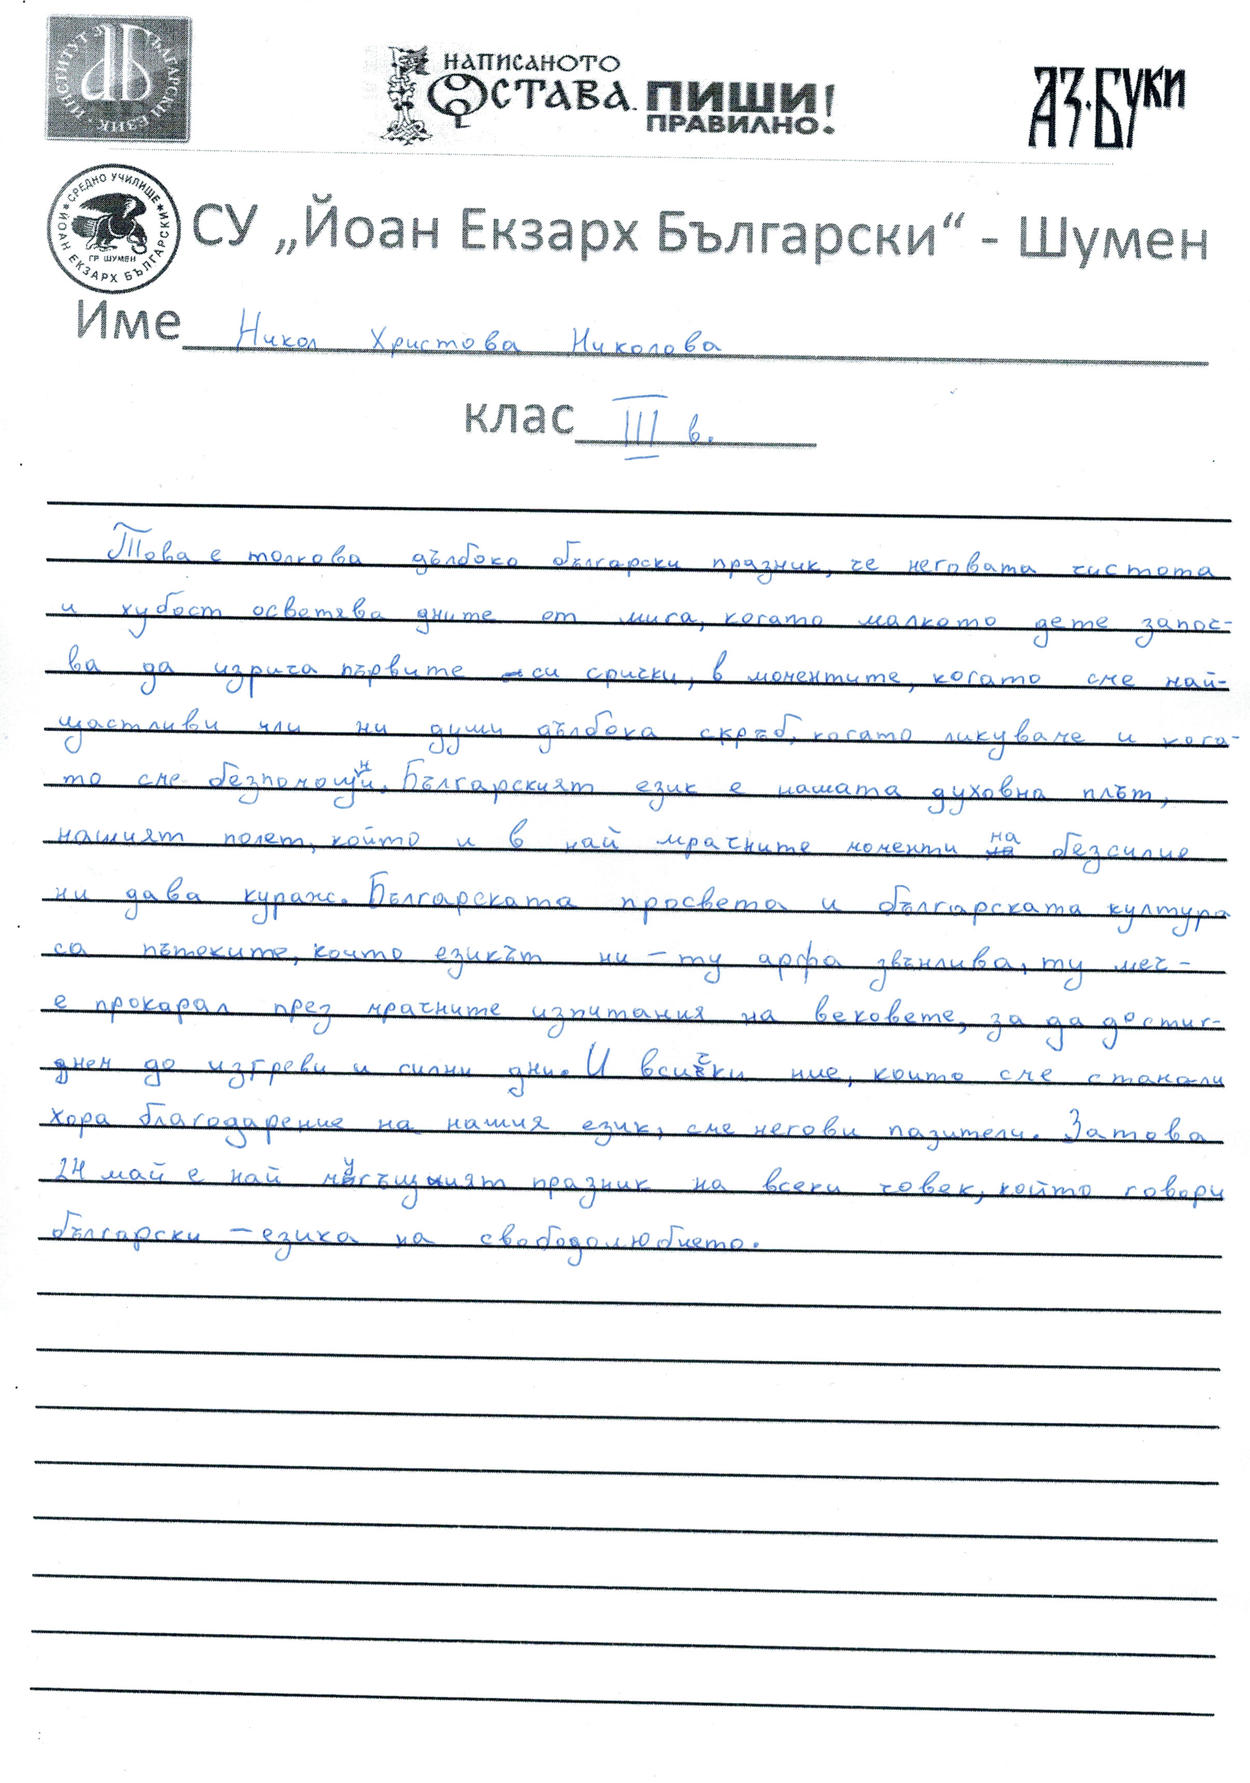 ИНСТИТУТ ЗА БЪЛГАРСКИ ЕЗИК
НАПИСАНОТО
ОСТАВА. ПИШИ
ПРАВИЛНО!
АЗ·БУКИ
СРЕДНО УЧИЛИЩЕ
ЙОАН ЕКЗАРХ БЪЛГАРСКИ
ГР ШУМЕН
СУ „Йоан Екзарх Български“ - Шумен
Име Никол Христова Николова
клас III в.
Това е толкова дълбоко български празник, че неговата чистота
и хубост осветява дните от мига, когато малкото дете запос-
ва да изрича първите си срички, в моментите, когато сме най-
щастливи или ни души дълбока скръб, когато ликуваме и кога-
то сме безпомощни. Българският език е нашата духовна плът,
нашият полет, който и в най мрачните моменти на безсилие
ни дава кураж. Българската просвета и българската култура
са пътеките, които езикът ни – ту арфа звънлива, ту меч –
е прокарал през мрачните изпитания на вековете, за да достиг-
днем до изгреви и силни дни. И всички ние, които сме станали
хора благодарение на нашия език, сме негови пазители. Затова
24 май е най празник на всеки човек, който говори
български – езика на свободолюбието.